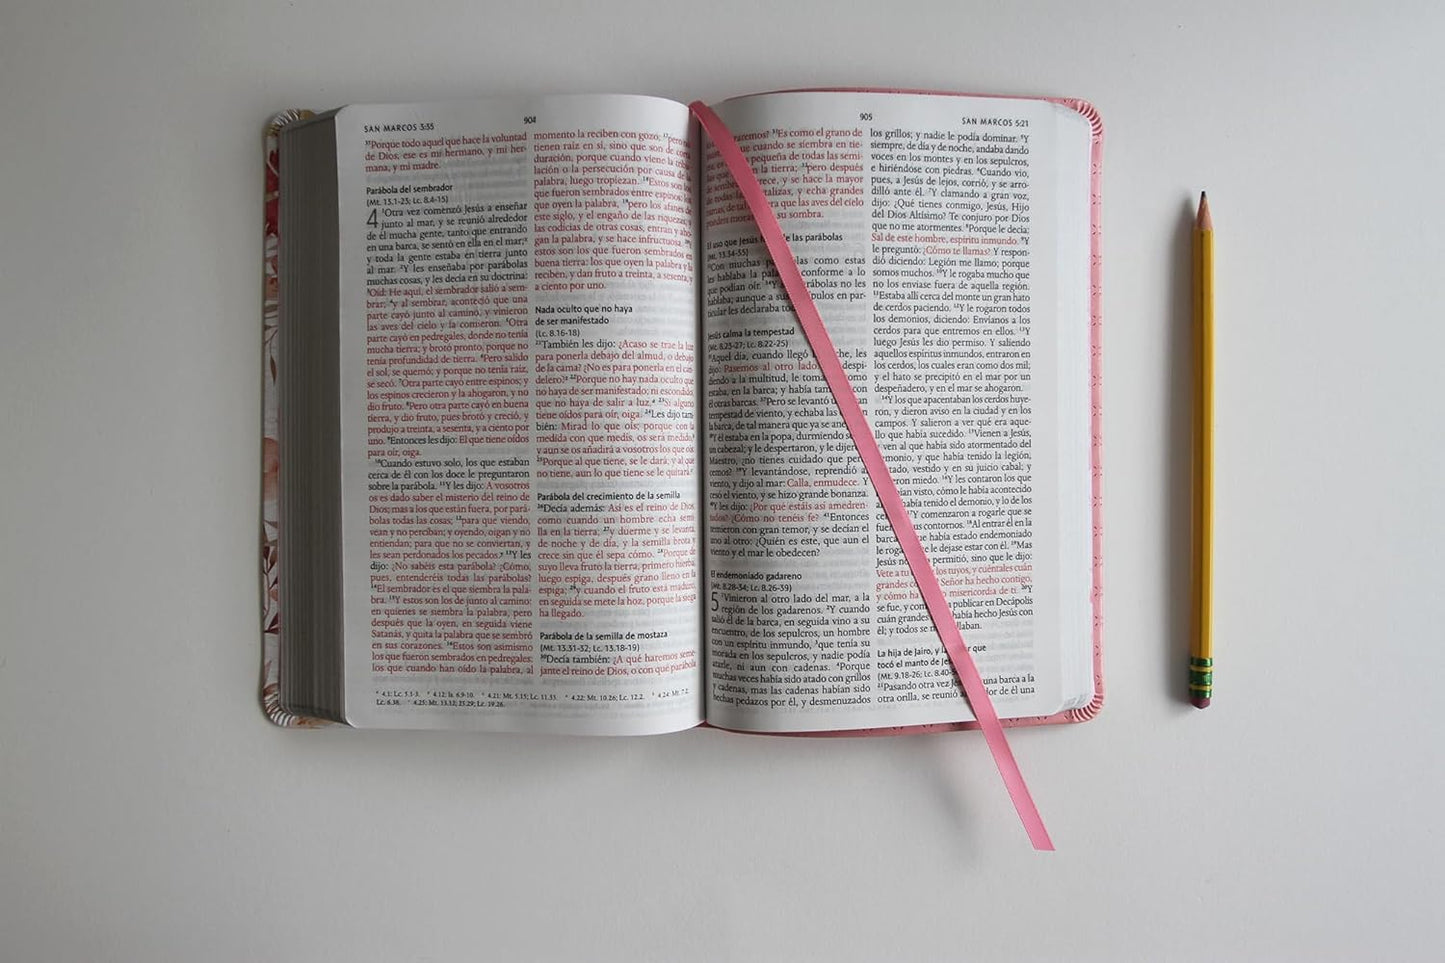 SAN MARCOS 3:35
904
³⁵Porque todo aquel que hace la voluntad
de Dios, ese es mi hermano, y mi her-
mana, y mi madre.
Parábola del sembrador
(Mt. 13.1-23; Lc. 8.4-15)
4 ¹Otra vez comenzó Jesús a enseñar
junto al mar, y se reunió alrededor
de él mucha gente, tanto que entrando
en una barca, se sentó en ella en el mar;
y toda la gente estaba en tierra junto
al mar. ²Y les enseñaba por parábolas
muchas cosas, y les decía en su doctrina:
³Oíd: He aquí, el sembrador salió a sem-
brar; ⁴y al sembrar, aconteció que una
parte cayó junto al camino, y vinieron
las aves del cielo y la comieron. ⁵Otra
parte cayó en pedregales, donde no tenía
mucha tierra; y brotó pronto, porque no
tenía profundidad de tierra. ⁶Pero salido
el sol, se quemó; y porque no tenía raíz,
se secó. ⁷Otra parte cayó entre espinos; y
los espinos crecieron y la ahogaron, y no
dio fruto. ⁸Pero otra parte cayó en buena
tierra, y dio fruto, pues brotó y creció, y
produjo a treinta, a sesenta, y a ciento por
uno. ⁹Entonces les dijo: El que tiene oídos
para oír, oiga.
¹⁰Cuando estuvo solo, los que estaban
cerca de él con los doce le preguntaron
sobre la parábola. ¹¹Y les dijo: A vosotros
os es dado saber el misterio del reino de
Dios; mas a los que están fuera, por pará-
bolas todas las cosas; ¹²para que viendo,
vean y no perciban; y oyendo, oigan y no
entiendan; para que no se conviertan, y
les sean perdonados los pecados. ¹³Y les
dijo: ¿No sabéis esta parábola? ¿Cómo,
pues, entenderéis todas las parábolas?
¹⁴El sembrador es el que siembra la pala-
bra. ¹⁵Y estos son los de junto al camino:
en quienes se siembra la palabra, pero
después que la oyen, en seguida viene
Satanás, y quita la palabra que se sembró
en sus corazones. ¹⁶Estos son asimismo
los que fueron sembrados en pedregales:
los que cuando han oído la palabra, al
momento la reciben con gozo; ¹⁷pero no
tienen raíz en sí, sino que son de corta
duración, porque cuando viene la tribu-
lación o la persecución por causa de la
palabra, luego tropiezan. ¹⁸Estos son los
que fueron sembrados entre espinos: los
que oyen la palabra, ¹⁹pero los afanes de
este siglo, y el engaño de las riquezas, y
las codicias de otras cosas, entran y aho-
gan la palabra, y se hace infructuosa. ²⁰Y
estos son los que fueron sembrados en
buena tierra: los que oyen la palabra y la
reciben, y dan fruto a treinta, a sesenta, y
a ciento por uno.
Nada oculto que no haya
de ser manifestado
(Lc. 8.16-18)
²¹También les dijo: ¿Acaso se trae la luz
para ponerla debajo del almud, o debajo
de la cama? ¿No es para ponerla en el can-
delero? ²²Porque no hay nada oculto que
no haya de ser manifestado; ni escondido,
que no haya de salir a luz. ²³Si alguno
tiene oídos para oír, oiga. ²⁴Les dijo tam-
bién: Mirad lo que oís; porque con la
medida con que medís, os será medido,
y aun se os añadirá a vosotros los que oís.
²⁵Porque al que tiene, se le dará; y al que
no tiene, aun lo que tiene se le quitará.
Parábola del crecimiento de la semilla
²⁶Decía además: Así es el reino de Dios,
como cuando un hombre echa semi-
lla en la tierra; ²⁷y duerme y se levanta,
de noche y de día, y la semilla brota y
crece sin que él sepa cómo. ²⁸Porque de
suyo lleva fruto la tierra, primero hierba,
luego espiga, después grano lleno en la
espiga; ²⁹y cuando el fruto está maduro,
en seguida se mete la hoz, porque la siega
ha llegado.
Parábola de la semilla de mostaza
(Mt. 13.31-32; Lc. 13.18-19)
³⁰Decía también: ¿A qué haremos seme-
jante el reino de Dios, o con qué parábola
4.1: Lc. 5.1-3. 4.12: Is. 6.9-10. 4.21: Mt. 5.15; Lc. 11.33. 4.22: Mt. 10.26; Lc. 12.2. 4.24: Mt. 7.2.
Lc. 6.38. 4.25: Mt. 13.12; 25.29; Lc. 19.26.
905
SAN MARCOS 5:21
³¹Es como el grano de
que cuando se siembra en tie-
pequeña de todas las semi-
en la tierra; ³²pero después
crece, y se hace la mayor
de todas las hortalizas, y echa grandes
ramas, de tal que las aves del cielo
pueden su sombra.
El uso que Jesús de las parábolas
(Mt. 13.34-35)
³³Con muchas como estas
les hablaba la conforme a lo
que podían oír. ³⁴Y parábolas no les
hablaba; aunque a sus en par-
ticular les declaraba
Jesús calma la tempestad
(Mt. 8.23-27; Lc. 8.22-25)
³⁵Aquel día, cuando llegó la noche, les
dijo: Pasemos al otro lado. despi-
diendo a la multitud, le como
estaba, en la barca; y había con
él otras barcas. ³⁷Pero se levantó
tempestad de viento, y echaba las
la barca, de tal manera que ya se
³⁸Y él estaba en la popa, durmiendo
un cabezal; y le despertaron, y le
Maestro, ¿no tienes cuidado que
³⁹Y levantándose, reprendió
viento, y dijo al mar: Calla, enmudece. Y
cesó el viento, y se hizo grande bonanza.
⁴⁰Y les dijo: ¿Por qué estáis así amedren-
tados? ¿Cómo no tenéis fe? ⁴¹Entonces
temieron con gran temor, y se decían el
uno al otro: ¿Quién es este, que aun el
viento y el mar le obedecen?
El endemoniado gadareno
(Mt. 8.28-34; Lc. 8.26-39)
5 ¹Vinieron al otro lado del mar, a la
región de los gadarenos. ²Y cuando
salió él de la barca, en seguida vino a su
encuentro, de los sepulcros, un hombre
con un espíritu inmundo, ³que tenía su
morada en los sepulcros, y nadie podía
atarle, ni aun con cadenas. ⁴Porque
muchas veces había sido atado con grillos
y cadenas, mas las cadenas habían sido
hechas pedazos por él, y desmenuzados
los grillos; y nadie le podía dominar. ⁵Y
siempre, de día y de noche, andaba dando
voces en los montes y en los sepulcros,
e hiriéndose con piedras. ⁶Cuando vio,
pues, a Jesús de lejos, corrió, y se arro-
dilló ante él. ⁷Y clamando a gran voz,
dijo: ¿Qué tienes conmigo, Jesús, Hijo
del Dios Altísimo? Te conjuro por Dios
que no me atormentes. ⁸Porque le decía:
Sal de este hombre, espíritu inmundo. ⁹Y
le preguntó: ¿Cómo te llamas? Y respon-
dió diciendo: Legión me llamo; porque
somos muchos. ¹⁰Y le rogaba mucho que
no los enviase fuera de aquella región.
¹¹Estaba allí cerca del monte un gran hato
de cerdos paciendo. ¹²Y le rogaron todos
los demonios, diciendo: Envíanos a los
cerdos para que entremos en ellos. ¹³Y
luego Jesús les dio permiso. Y saliendo
aquellos espíritus inmundos, entraron en
los cerdos, los cuales eran como dos mil;
y el hato se precipitó en el mar por un
despeñadero, y en el mar se ahogaron.
¹⁴Y los que apacentaban los cerdos huye-
ron, y dieron aviso en la ciudad y en los
campos. Y salieron a ver qué era aque-
llo que había sucedido. ¹⁵Vienen a Jesús,
y ven al que había sido atormentado del
demonio, y que había tenido la legión,
sentado, vestido y en su juicio cabal; y
tuvieron miedo. ¹⁶Y les contaron los que
habían visto, cómo le había acontecido
al que había tenido el demonio, y lo de los
¹⁷Y comenzaron a rogarle que se
sus contornos. ¹⁸Al entrar él en la
barca, que había estado endemoniado
le rogaba le dejase estar con él. ¹⁹Mas
Jesús no permitió, sino que le dijo:
Vete a tu los tuyos, y cuéntales cuán
grandes Señor ha hecho contigo,
y cómo ha misericordia de ti. ²⁰Y
se fue, y publicar en Decápolis
cuán grandes había hecho Jesús con
él; y todos se
La hija de Jairo, y la que
tocó el manto de Jesús
(Mt. 9.18-26; Lc. 8.40-
²¹Pasando otra vez Jesús una barca a la
otra orilla, se reunió de él una